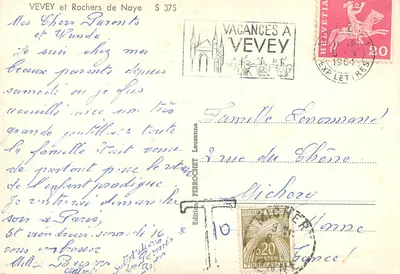 VEVEY et Rochers de Naye S 375
Mes Chers Parents
et Wanda.
Je suis chez mes
beaux parents depuis
samedi où je fus
accueillie avec une très
grande gentillesse toute
la famille était venue
de partout pour le retour
de l'enfant prodigue
Je rentre dimanche
soir à Paris,
et viendrai samedi 10
vous embrasser
Mille Baisers
VACANCES A
VEVEY
HELVETIA
20
1964
EXP. LETTRES
Editions PERROCHET Lausanne
Famille Lenormand
2 rue du Chêne
Michery
Yonne
France!
T
10
0,20